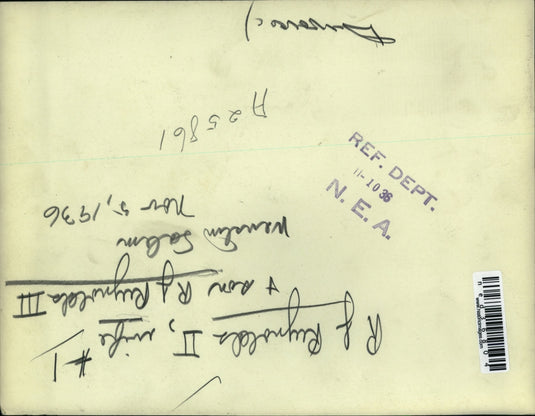 #1
R J Reynolds II, wife
+ son R J Reynolds III
Winston Salem
Nov 5, 1936
A25861
REF. DEPT.
11-10 36
N. E. A.